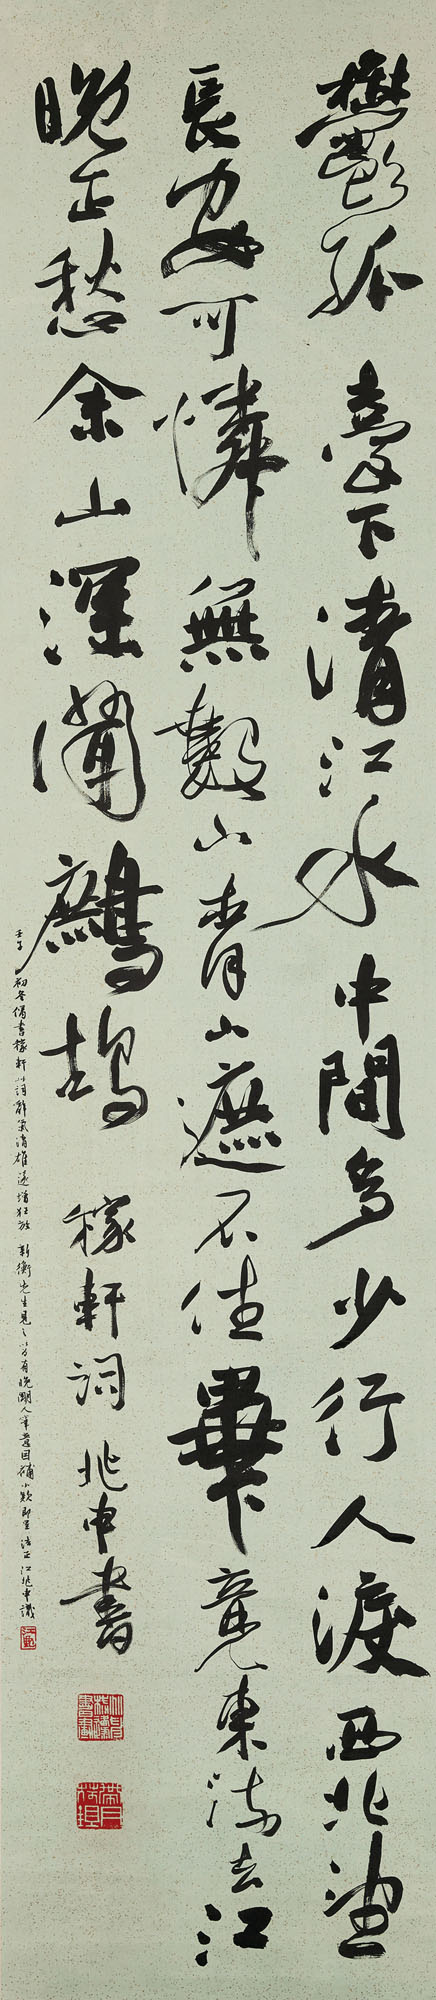 鬱孤臺下清江水中間多少行人淚西北望
長安可憐無數山青山遮不住畢竟東流去江
晚正愁余山深聞鷓鴣 稼軒詞 兆申書
壬子初冬偶書稼軒小詞辭氣清雄遂增狂 新衡先生見之以為有晚明人筆意因補小款即呈 法正 江兆申識